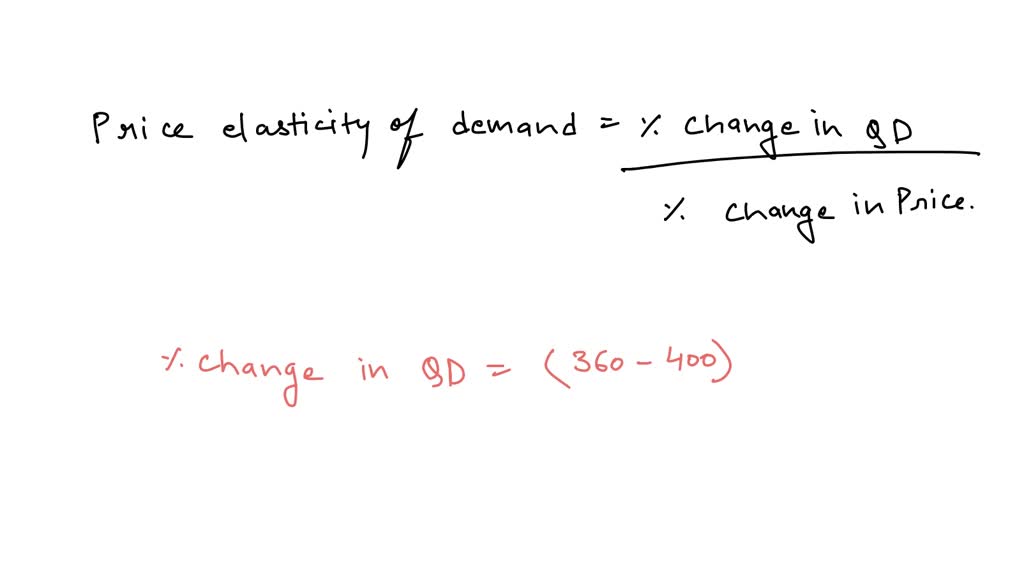 Price elasticity of demand = % change in QD
% change in Price.
% change in QD = (360 - 400)